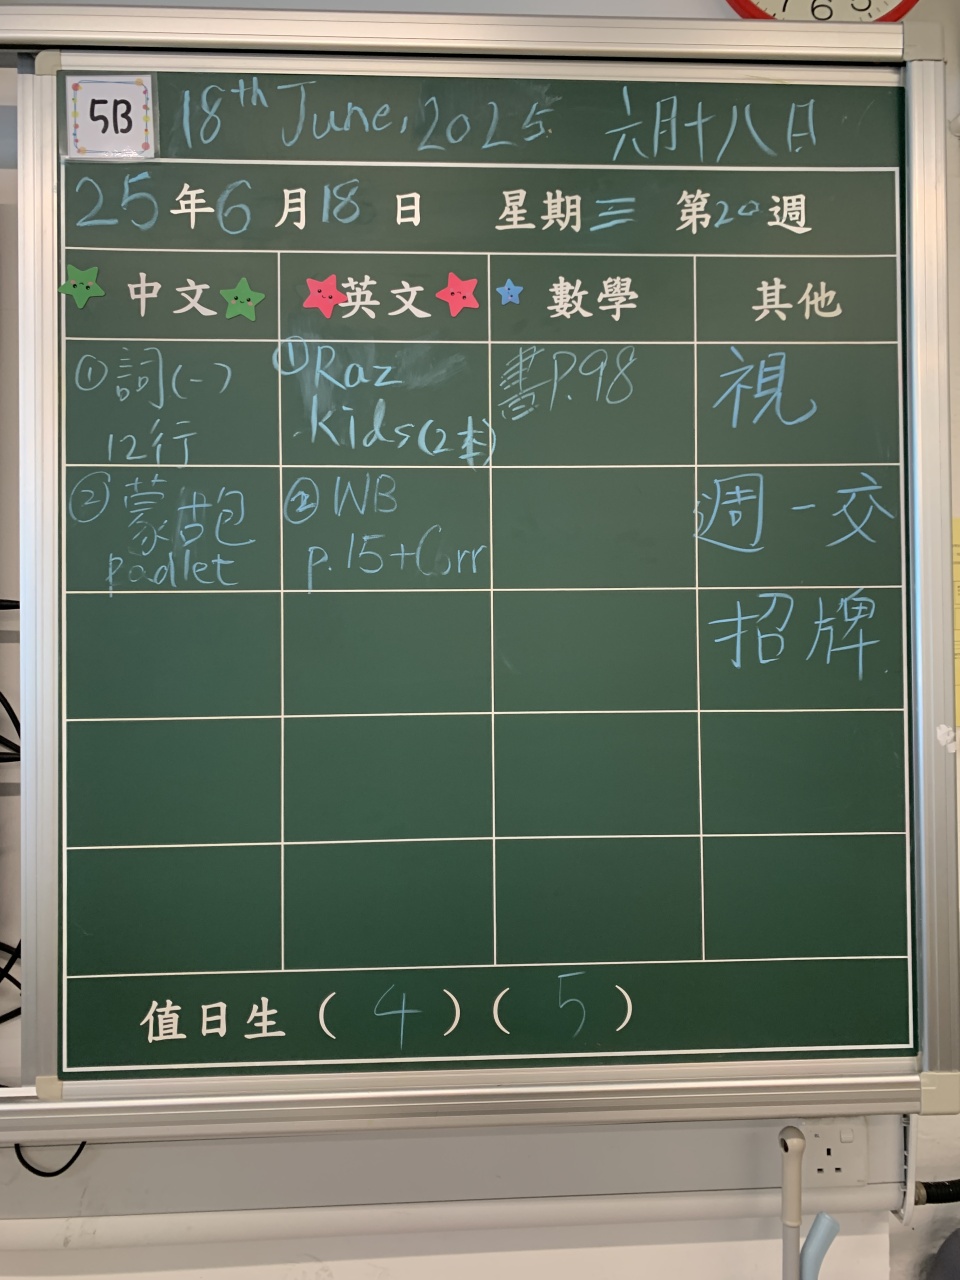 5B 18th June, 2025 六月十八日
25年6月18日 星期三 第20週
中文 英文 數學 其他
①詞(一) ①Raz 書P.98 視
12行 Kids(2本)
②蒙古包 ②WB 週一交
padlet p.15+Corr
招牌
值日生(4)(5)
7 6 5